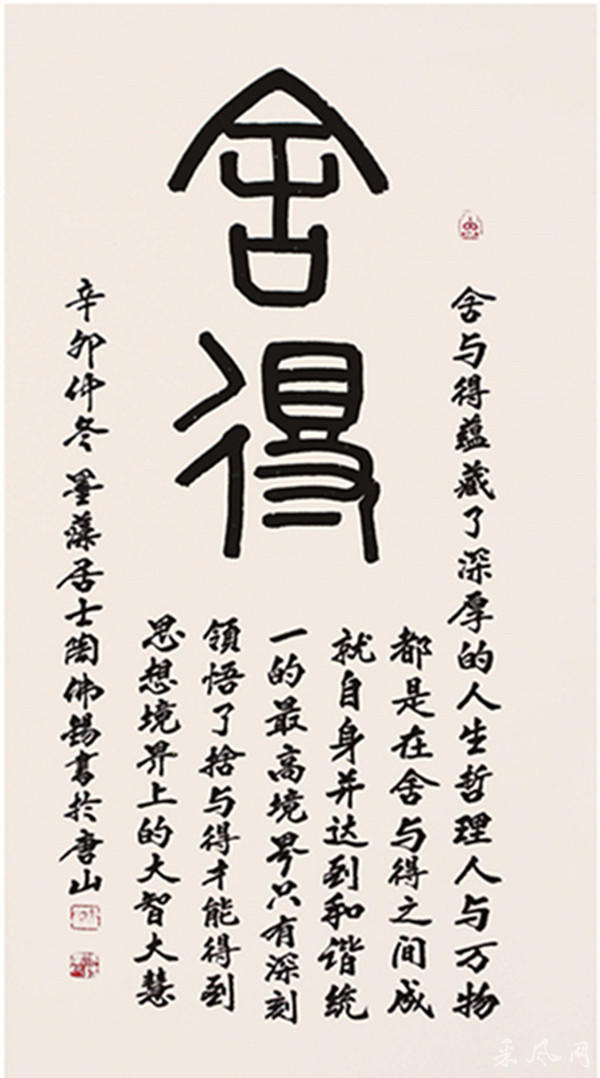 舍得
舍与得蕴藏了深厚的人生哲理人与万物
都是在舍与得之间成
就自身并达到和谐统
一的最高境界只有深刻
领悟了捨与得才能得到
思想境界上的大智大慧
辛卯仲冬墨藻居士陶佛锡书於唐山
采风网